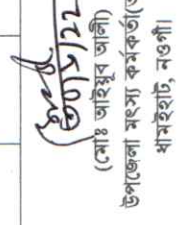 ৩০/৮/২২
(মোঃ আইয়ুব আলী)
উপজেলা মৎস্য কর্মকর্তা(
ধামইরহাট, নওগাঁ।